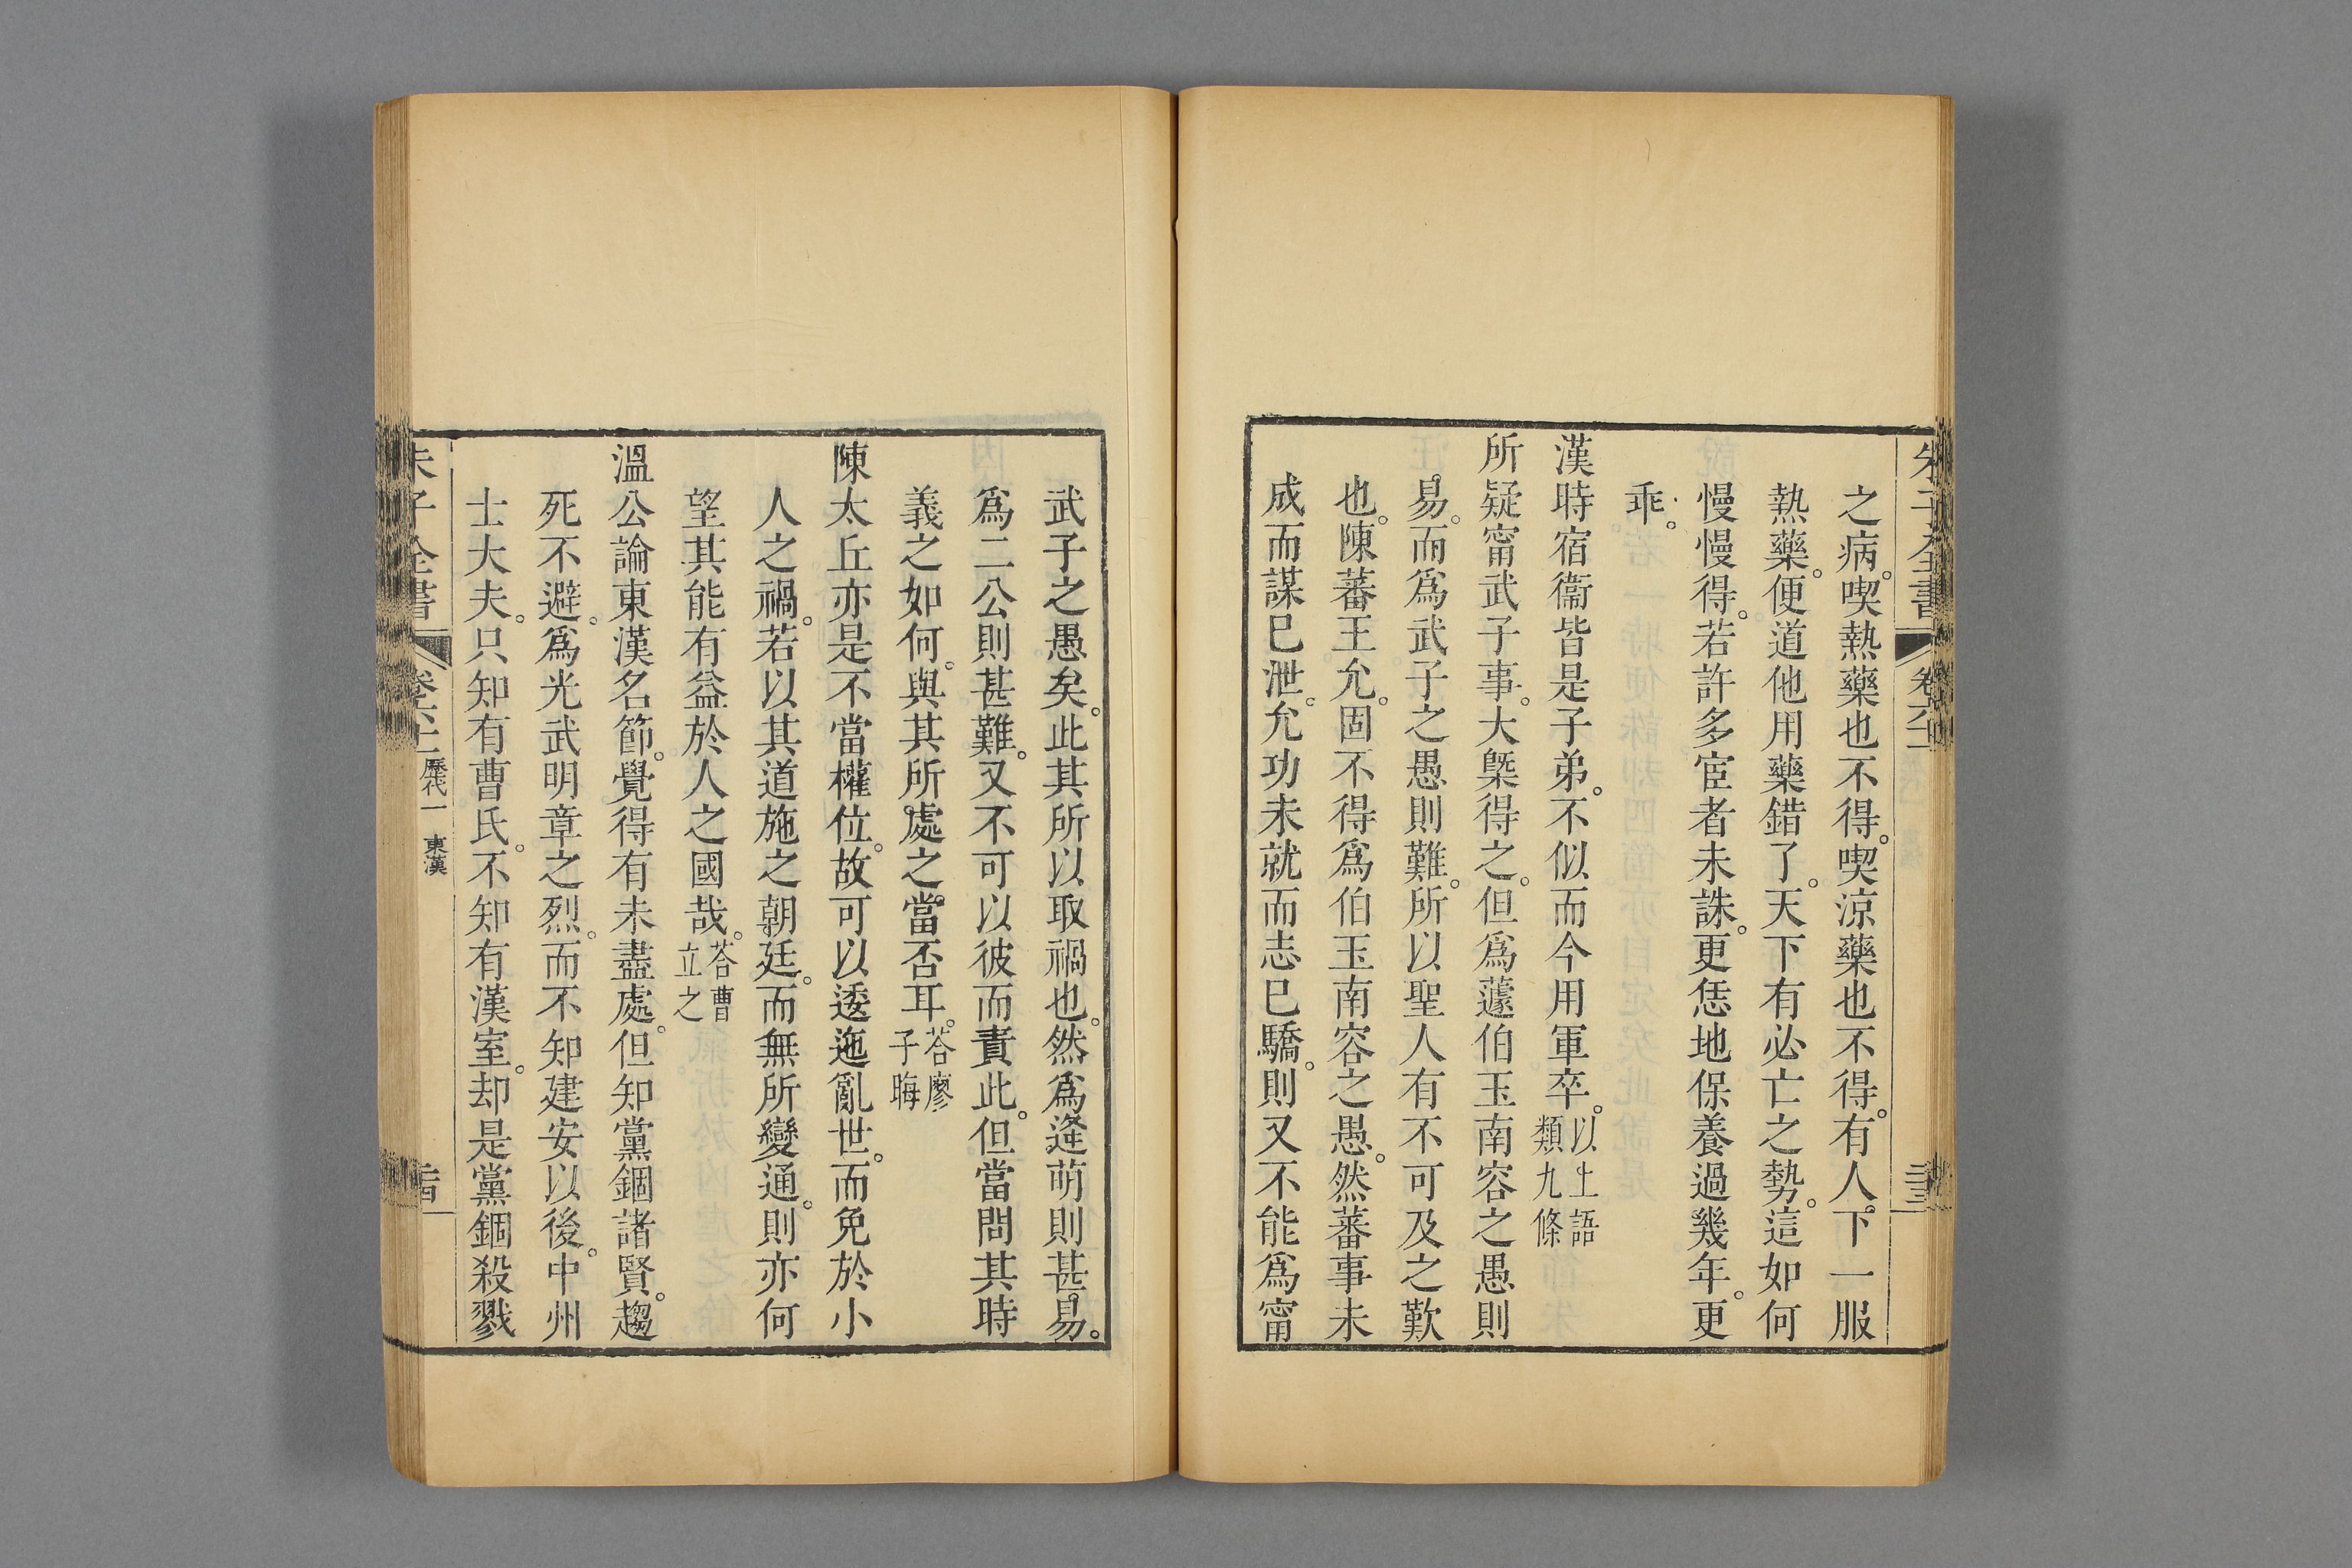 之病。喫熱藥也不得。喫涼藥也不得。有人下一服
熱藥。便道他用藥錯了。天下有必亡之勢。這如何
慢慢得。若許多宦者未誅。更恁地保養過幾年。更
乖。
漢時宿衞皆是子弟。不似而今用軍卒。以上語類九條
所疑甯武子事。大槩得之。但爲蘧伯玉南容之愚則
易。而爲武子之愚則難。所以聖人有不可及之歎
也。陳蕃王允。固不得爲伯玉南容之愚。然蕃事未
成而謀已泄。允功未就而志已驕。則又不能爲甯
武子之愚矣。此其所以取禍也。然爲逄萌則甚易。
爲二公則甚難。又不可以彼而責此。但當問其時
義之如何。與其所處之當否耳。荅廖子晦
陳太丘亦是不當權位。故可以逶迤亂世。而免於小
人之禍。若以其道施之朝廷。而無所變通。則亦何
望其能有益於人之國哉。荅曹立之
溫公論東漢名節。覺得有未盡處。但知黨錮諸賢。趨
死不避。爲光武明章之烈。而不知建安以後。中州
士大夫。只知有曹氏。不知有漢室。却是黨錮殺戮
朱子全書
歷代一 東漢